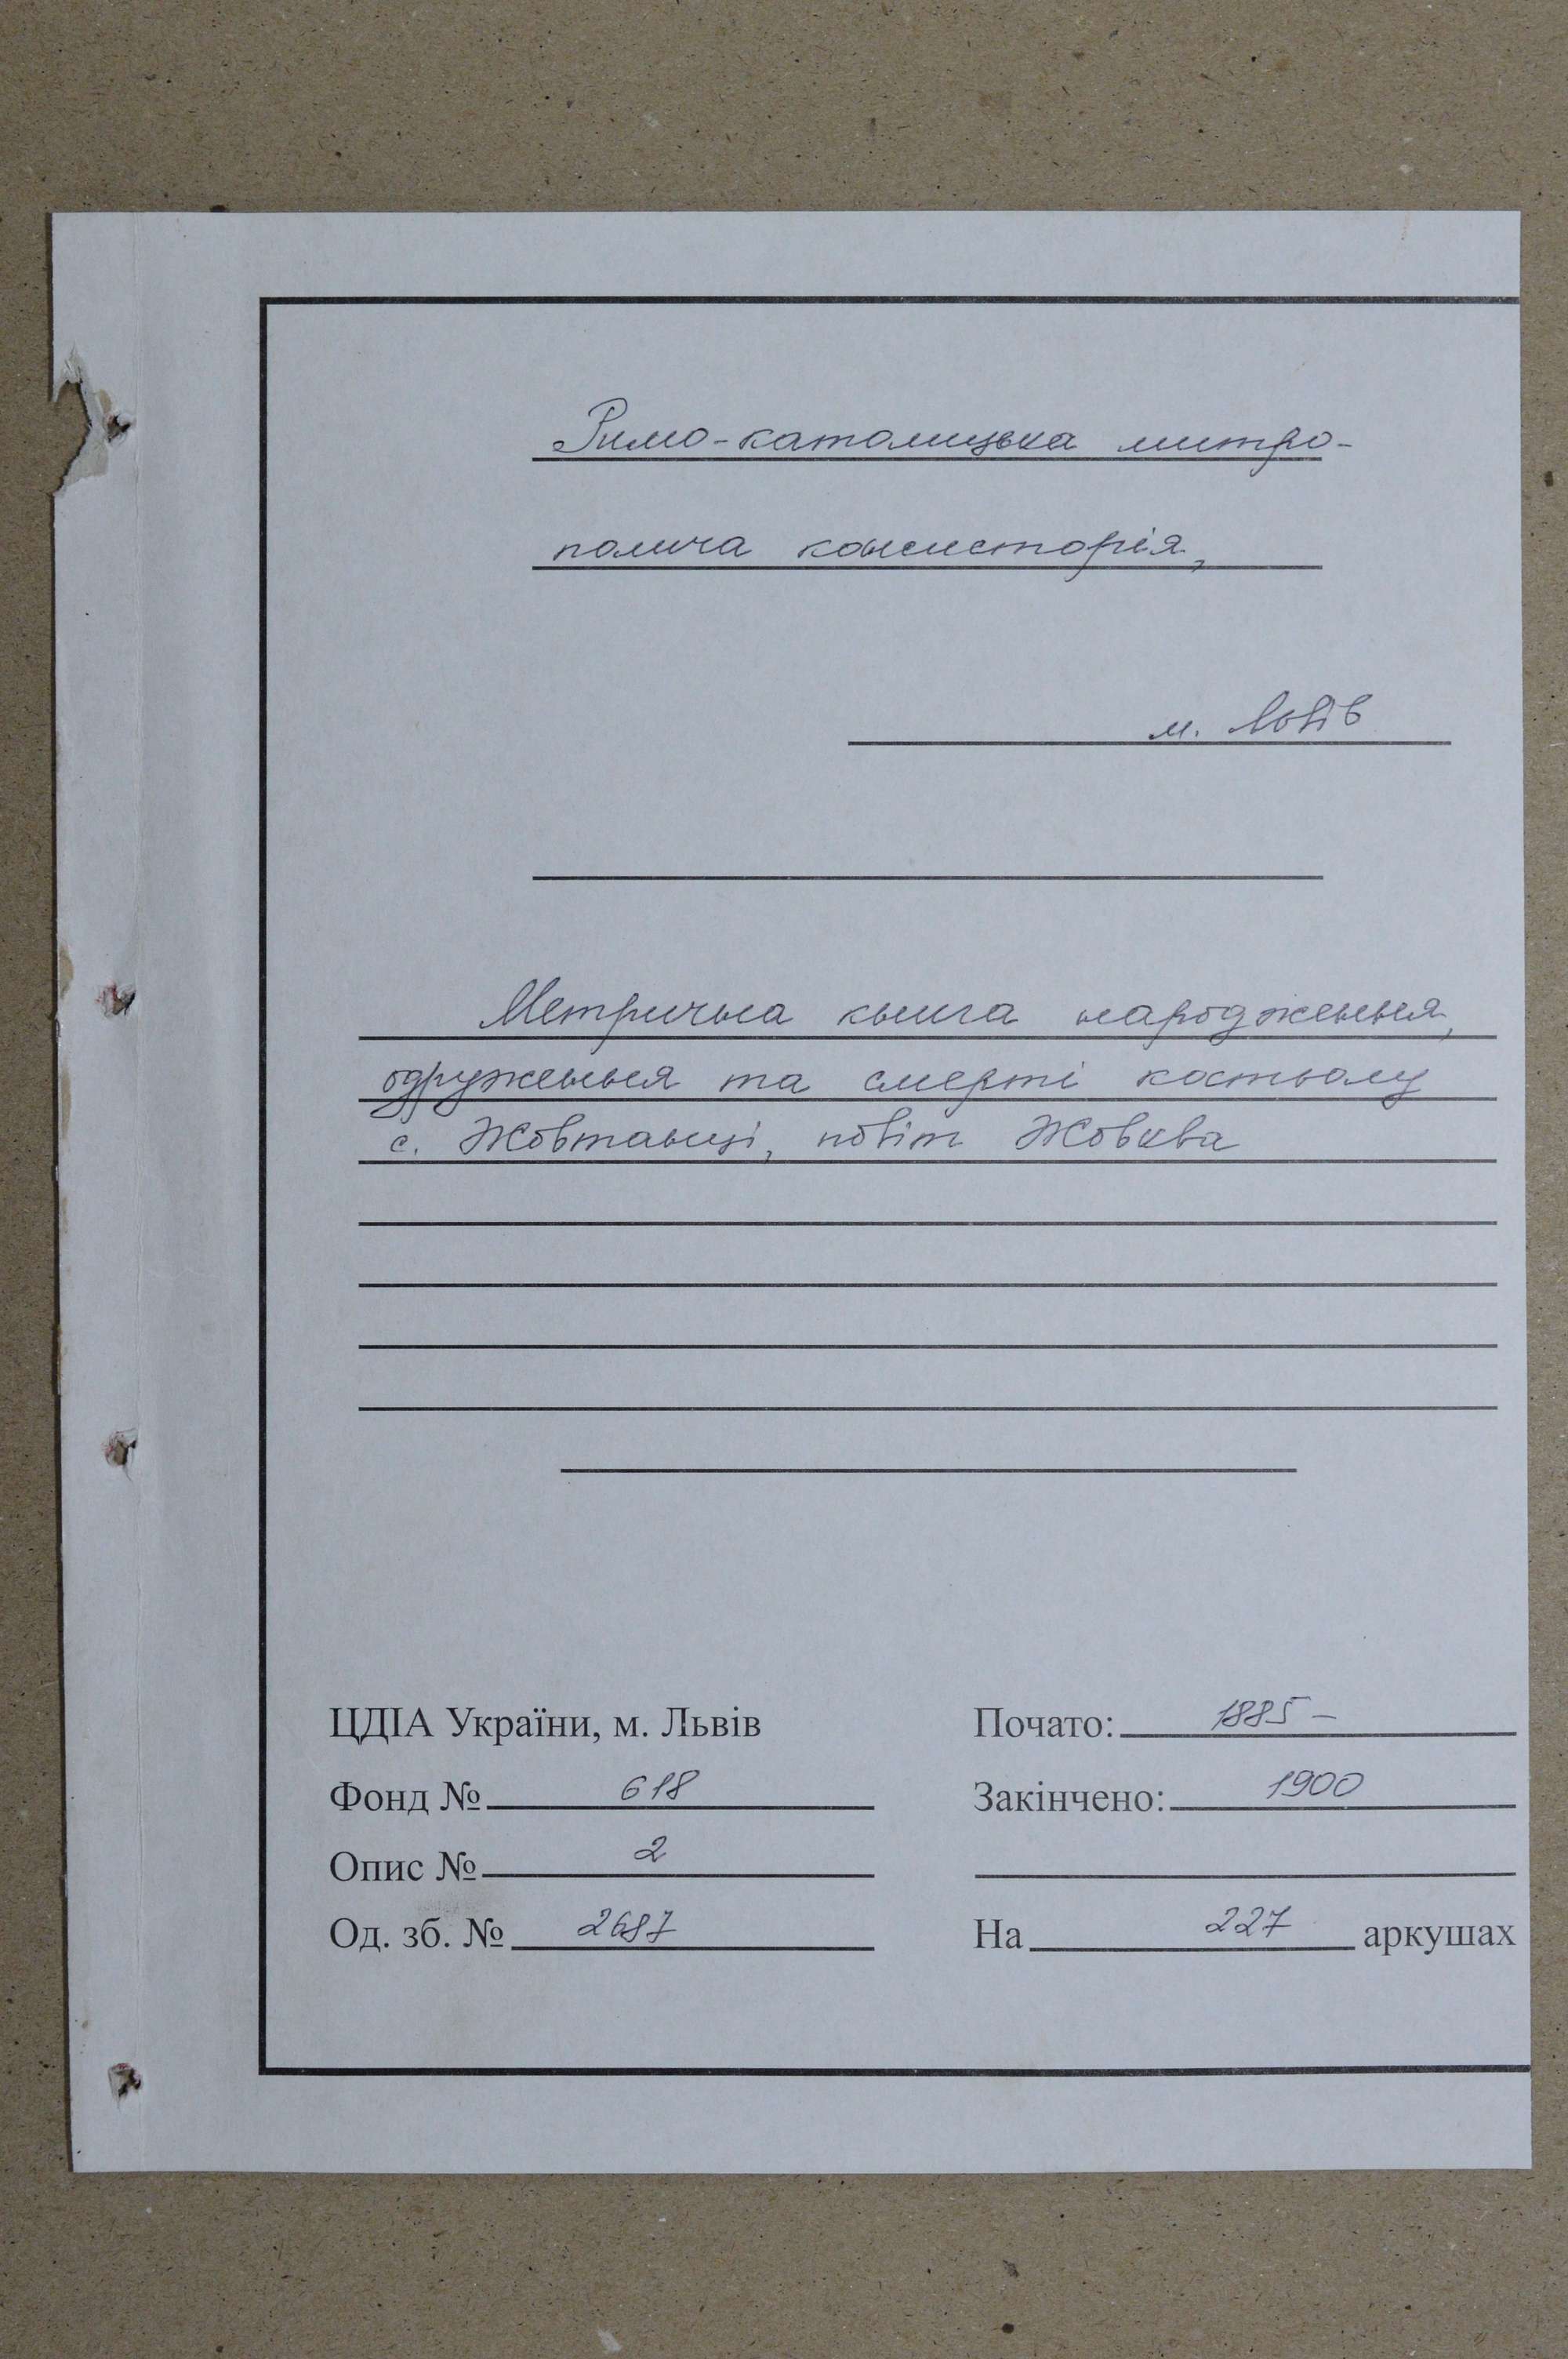 Римо-католицька митро-
полича консисторія,
м. Львів
Метрична книга народження,
одруження та смерті костьолу
с. Жовтанці, повіт Жовква
ЦДІА України, м. Львів
Почато: 1885 –
Фонд № 618
Закінчено: 1900
Опис № 2
Од. зб. № 2687
На 227 аркушах